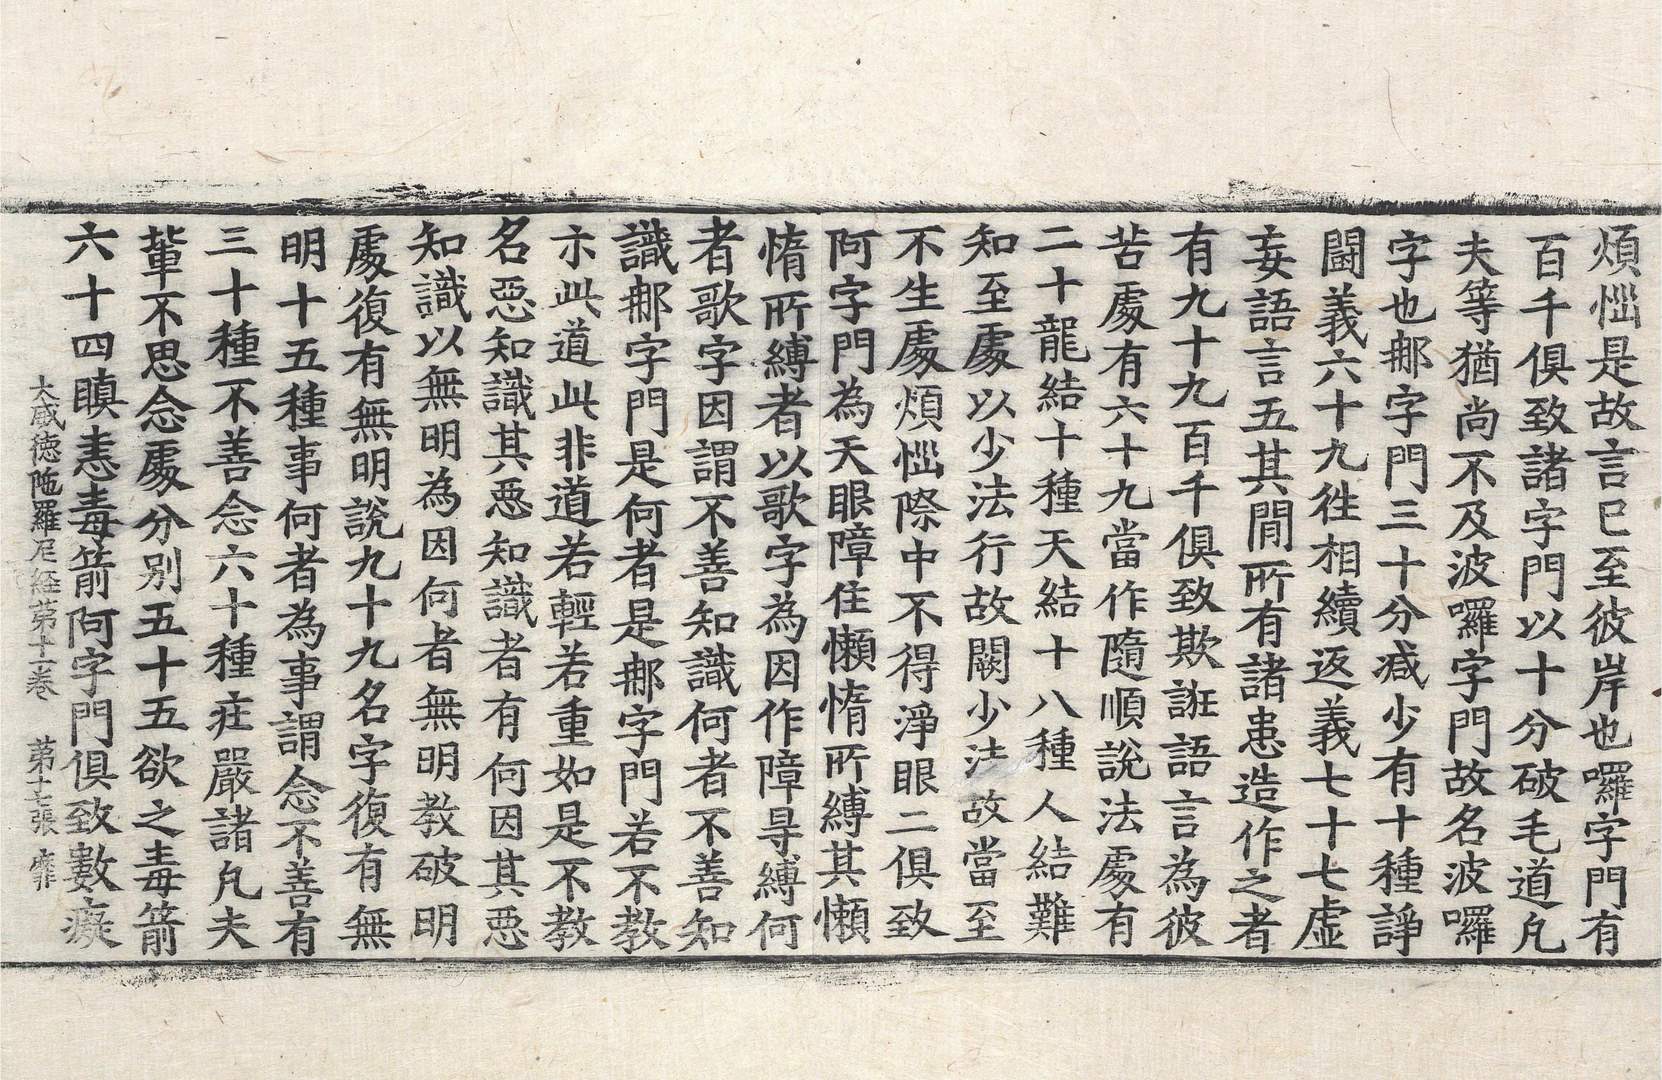 煩惱是故言已至彼岸也囉字門有
百千俱致諸字門以十分破毛道凡
夫等猶尚不及波囉字門故名波囉
字也郍字門三十分减少有十種諍
鬪義六十九徃相續返義七十七虛
妄語言五其閒所有諸患造作之者
有九十九百千俱致欺誑語言為彼
苦處有六十九當作隨順說法處有
二十龍結十種天結十八種人結難
知至處以少法行故闕少法故當至
不生處煩惱際中不得淨眼二俱致
阿字門為天眼障住懶惰所縛其懶
惰所縛者以歌字為因作障㝵縛何
者歌字因謂不善知識何者不善知
識郍字門是何者是郍字門若不教
示此道此非道若輕若重如是不教
名惡知識其惡知識者有何因其惡
知識以無明為因何者無明教破明
處復有無明說九十九名字復有無
明十五種事何者為事謂念不善有
三十種不善念六十種莊嚴諸凡夫
軰不思念處分別五十五欲之毒箭
六十四瞋恚毒箭阿字門俱致數癡
大威德陁羅尼經第十一卷 第十七張 靡